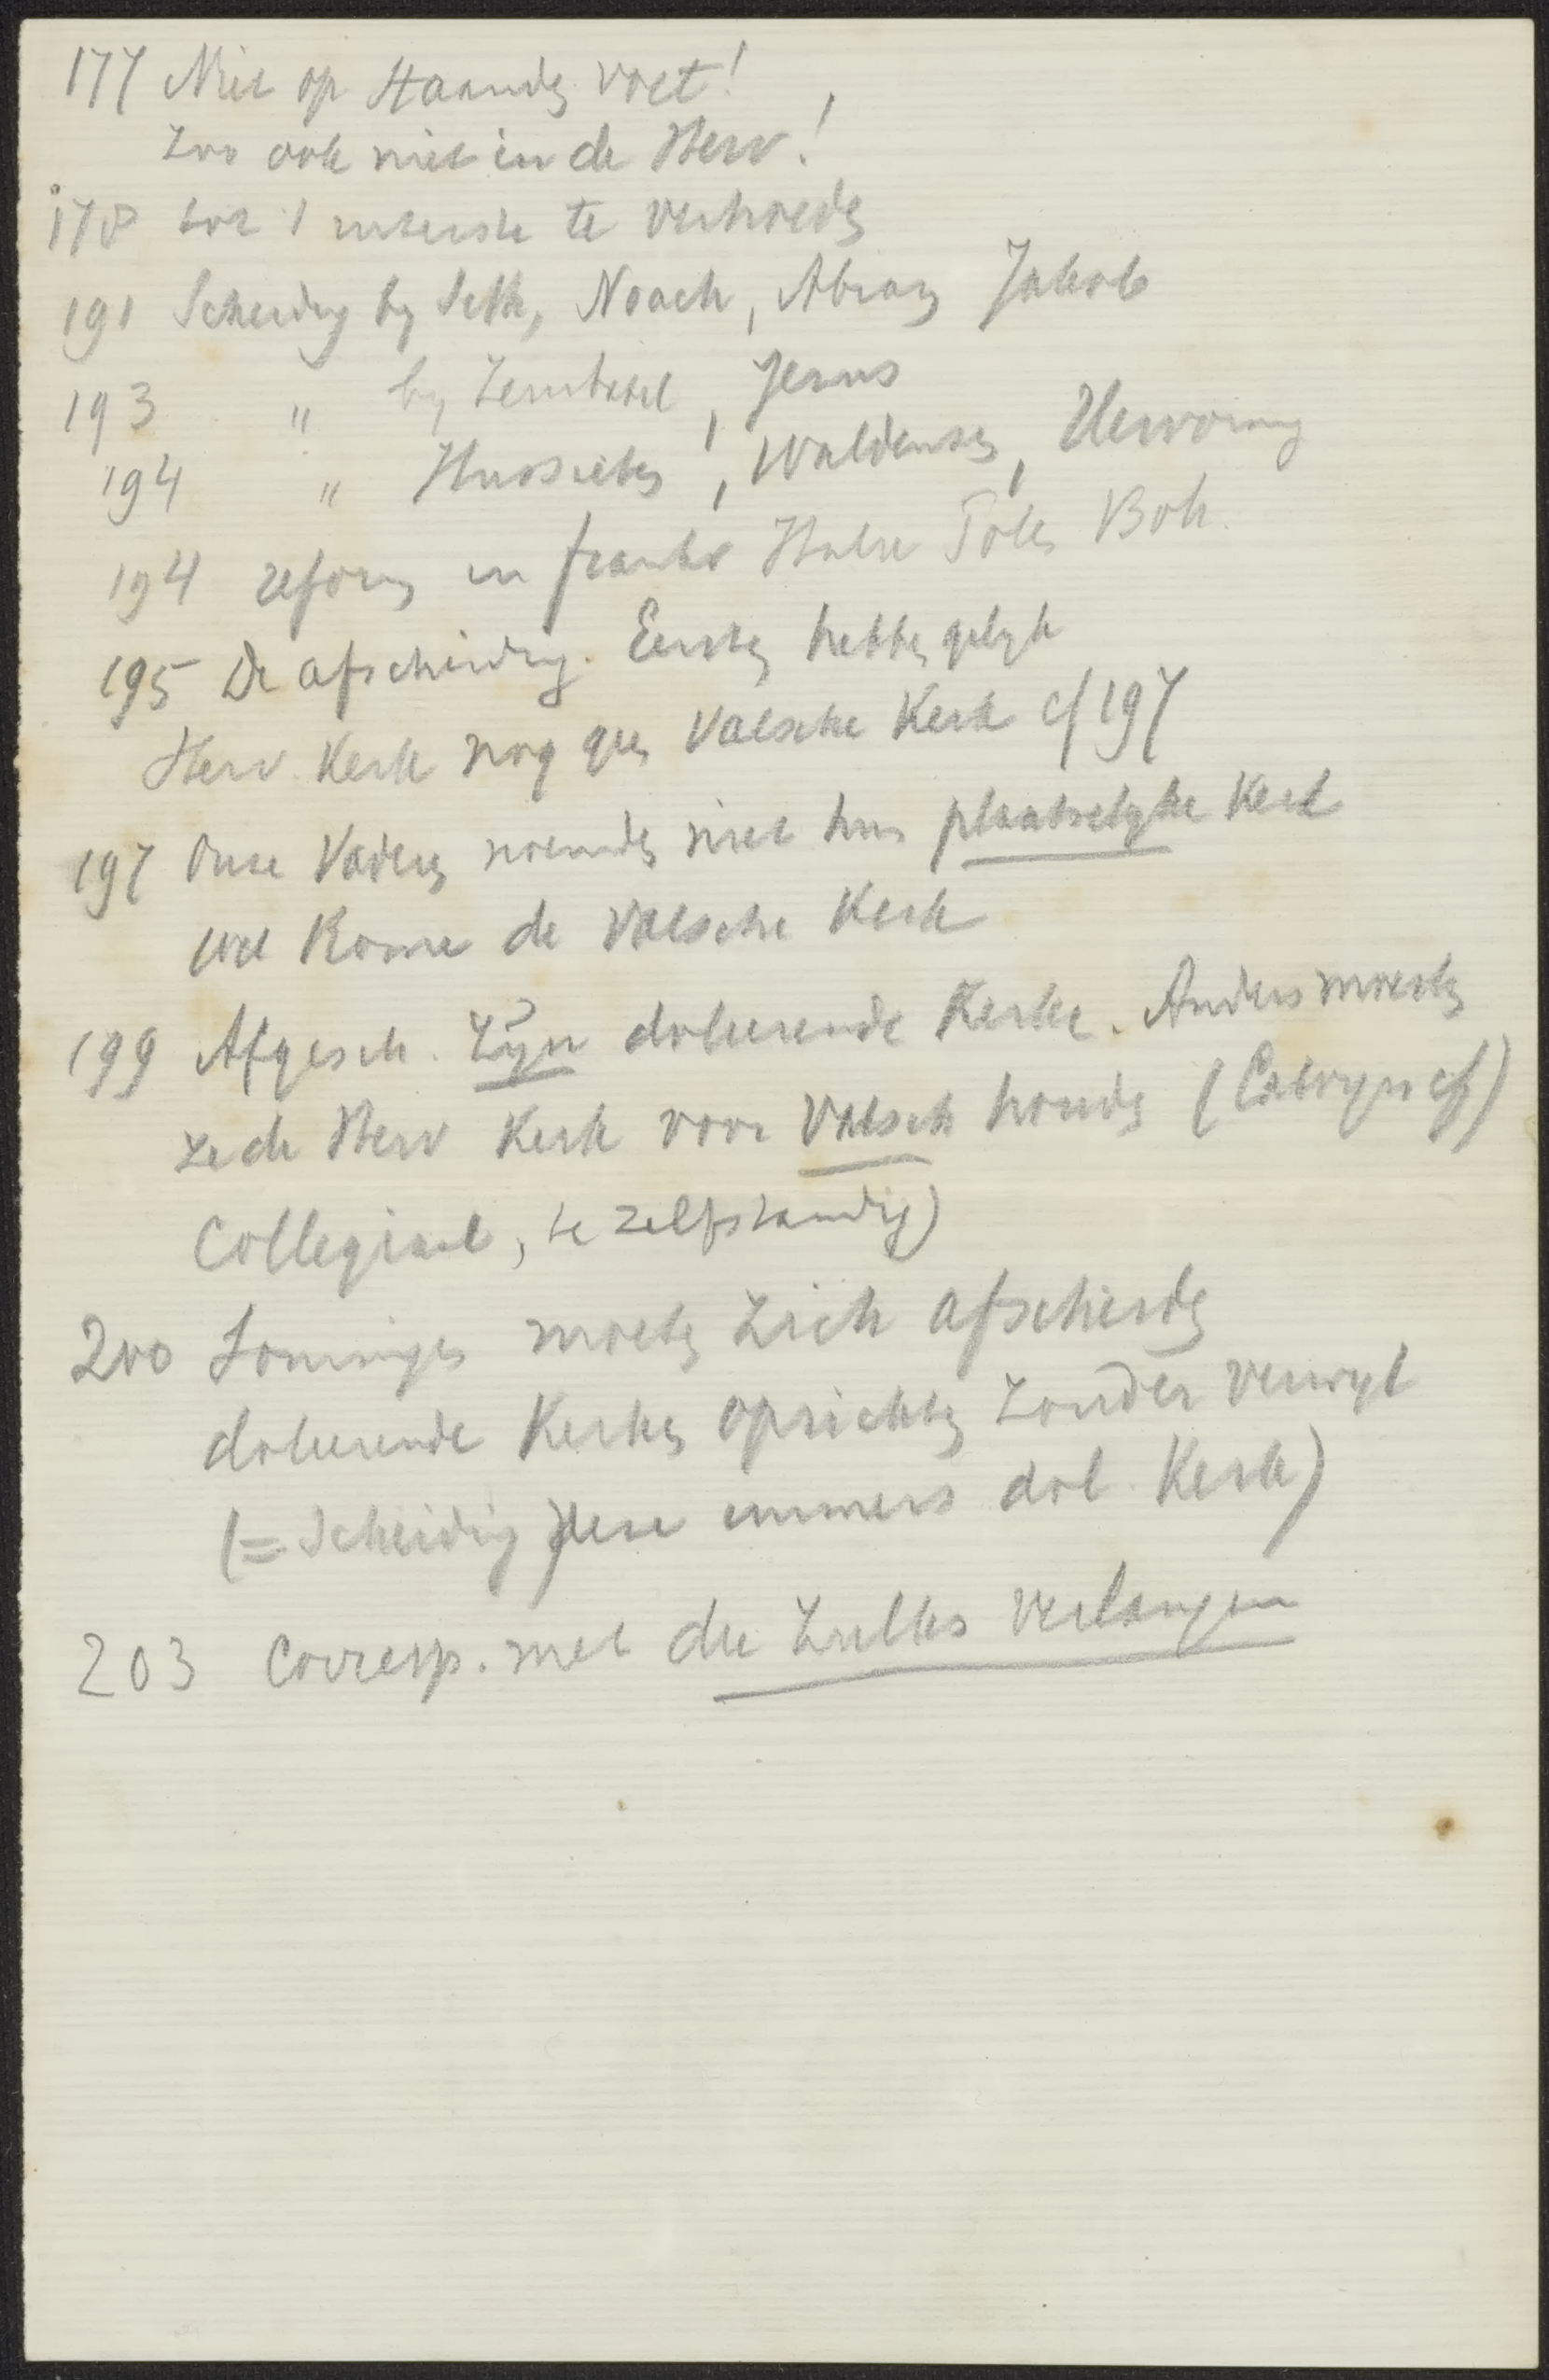 177 Niet op staanden voet!
Zoo ook niet in de Herv!
178 tot 't uiterste te verhoeden
191 Scheiding by Seth, Noach, Abram Jakob
193 " by Zerubabel, Jezus
194 " Hussieten!, Waldensen, Hervorming
194 reform in frankr Italie Polen Boh.
195 De afscheiding. Eersten hebben gelyk
Herv. Kerk nog geen Valsche Kerk cf 197
197 Onze Vaderen noemden niet hun plaatselyke Kerk
wel Rome de Valsche Kerk
199 Afgesch. Zyn doleerende Kerke. Anders moesten
ze de Herv Kerk voor Valsch houden (Calvyn cf)
Collegiaal, te zelfstandig)
200 Sommigen moeten zich afscheiden
doleerende Kerken oprichten zonder verwyt
(= Scheiding) deze immers dol. Kerk)
203 Corresp. met die Zulks verlangen